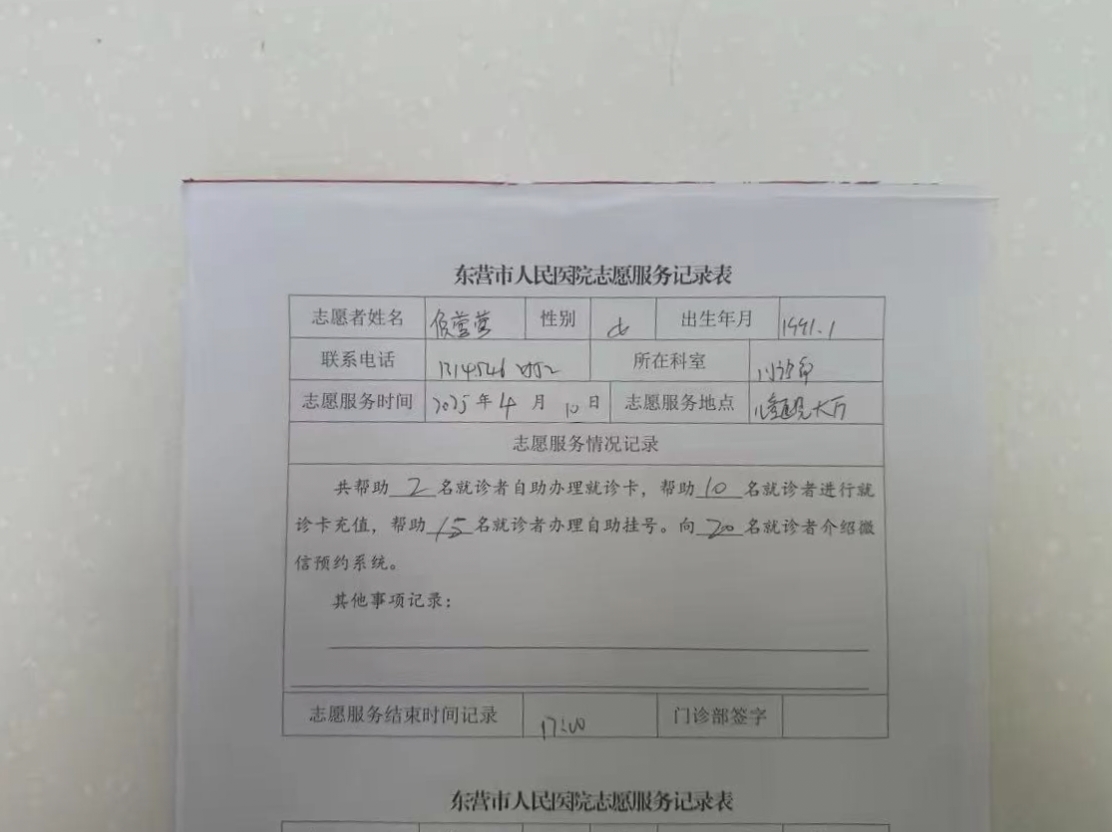 东营市人民医院志愿服务记录表
志愿者姓名 侯营营 性别 女 出生年月 1991.1
联系电话 所在科室 门诊部
志愿服务时间 2025年4月10日 志愿服务地点 大厅
志愿服务情况记录
共帮助2名就诊者自助办理就诊卡，帮助10名就诊者进行就
诊卡充值，帮助15名就诊者办理自助挂号。向20名就诊者介绍微
信预约系统。
其他事项记录：
志愿服务结束时间记录 17:00 门诊部签字
东营市人民医院志愿服务记录表